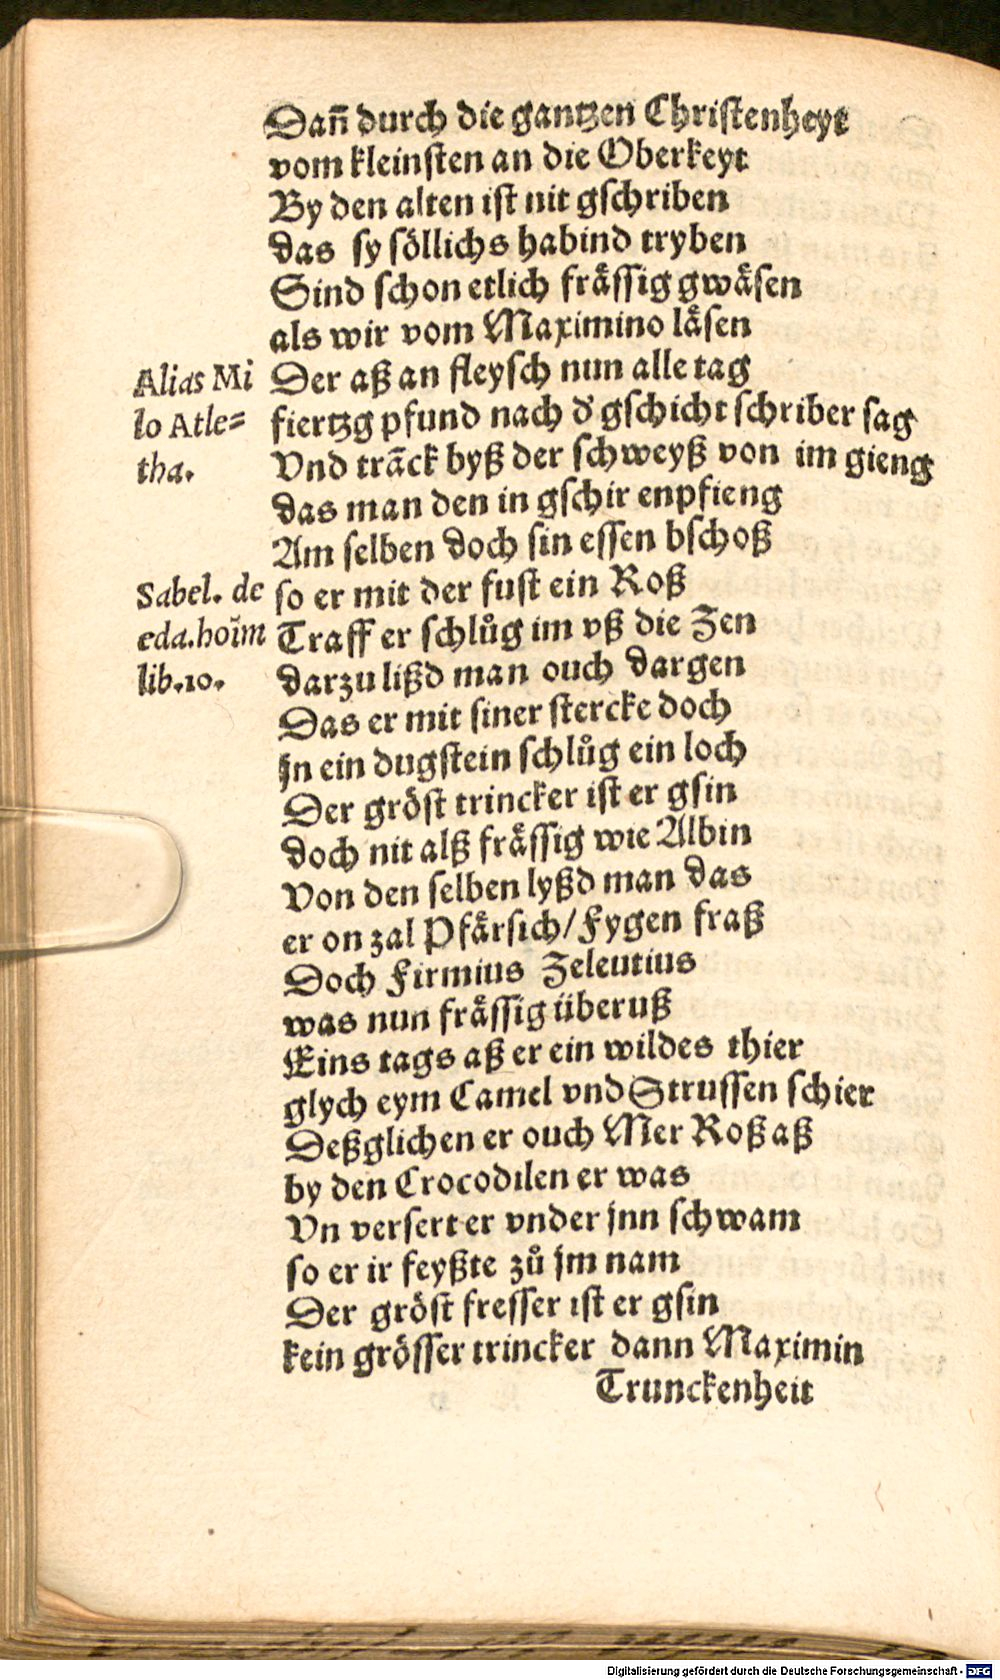 Dañ durch die gantzen Christenheyt
vom kleinsten an die Oberkeyt
By den alten ist nit gschriben
das sy söllichs habind tryben
Sind schon etlich fråssig gwåsen
als wir vom Maximino låsen
Alias Mi
lo Atle=
tha.
Der aß an fleysch nun alle tag
fiertzg pfund nach d' gschicht schriber sag
Vnd trãck byß der schweyß von im gieng
das man den in gschir enpfieng
Am selben doch sin essen bschoß
Sabel. de
eda.hoĩm
lib.10.
so er mit der fust ein Roß
Traff er schlůg im vß die Zen
darzu lißd man ouch dargen
Das er mit siner stercke doch
jn ein dugstein schlůg ein loch
Der gröst trincker ist er gsin
doch nit alß fråssig wie Albin
Von den selben lyßd man das
er on zal Pfårsich/Fygen fraß
Doch Firmius Zeleutius
was nun fråssig überuß
Eins tags aß er ein wildes thier
glych eym Camel vnd Strussen schier
Deßglichen er ouch Mer Roß aß
by den Crocodilen er was
Vn versert er vnder jnn schwam
so er ir feyßte zů jm nam
Der gröst fresser ist er gsin
kein grösser trincker dann Maximin
Trunckenheit
Digitalisierung gefördert durch die Deutsche Forschungsgemeinschaft - DFG